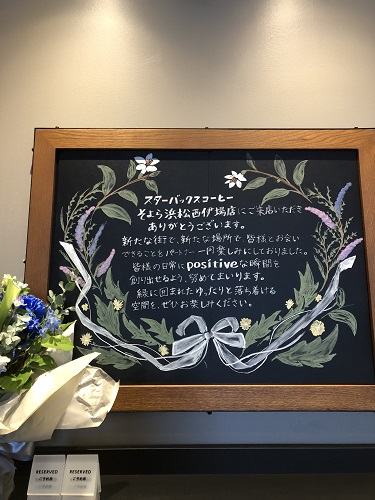 スターバックスコーヒー
そよら浜松西伊場店にご来店いただき
ありがとうございます。
新たな街で、新たな場所で 皆様とお会い
できることをパートナー 一同楽しみにしておりました。
皆様の日常にpositiveな瞬間を
創り出せるよう、努めてまいります。
緑に囲まれたゆったりと落ち着ける
空間を、ぜひお楽しみください。
RESERVED
ご予約席
RESERVED
ご予約席